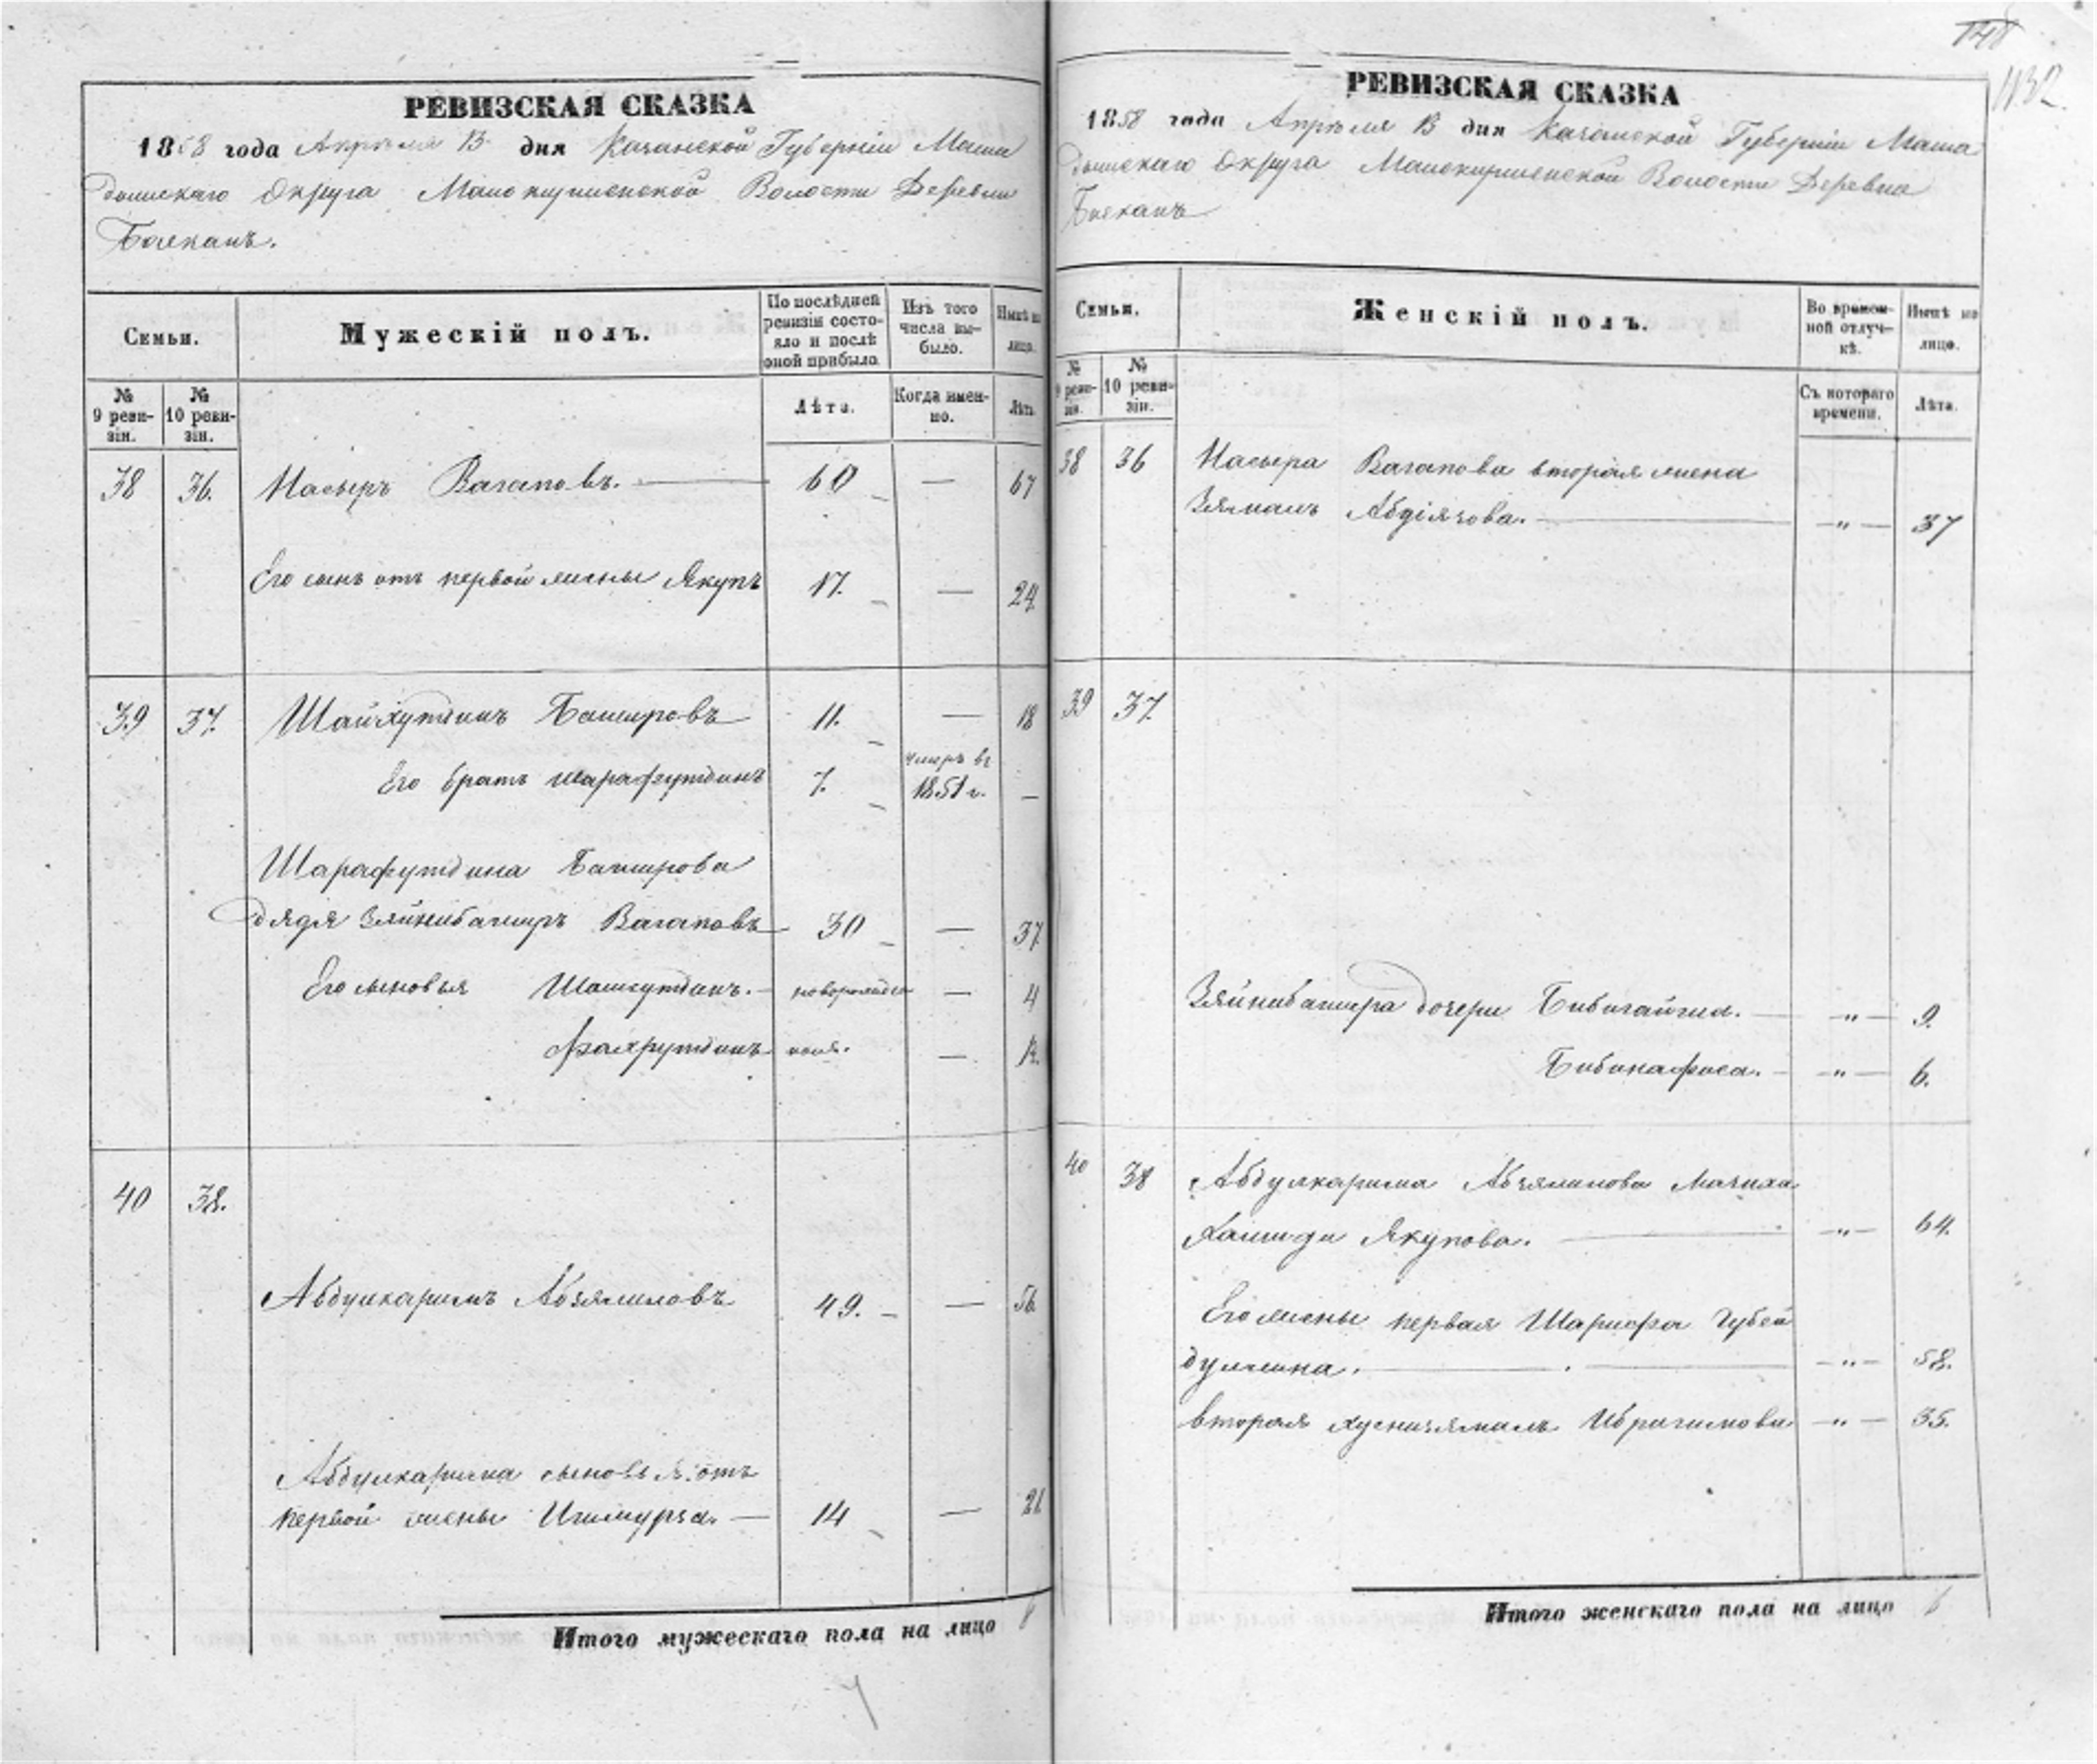 РЕВИЗСКАЯ СКАЗКА
1858 года Апреля 13 дня Казанской Губерніи Мама
дышскаго Округа Волости Деревни
РЕВИЗСКАЯ СКАЗКА
1858 года Апреля 13 дня Казанской Губерніи Мама
дышскаго Округа Волости Деревня
Семьи.
Мужескій полъ.
По послѣдней ревизіи состояло и послѣ оной прибыло
Изъ того числа выбыло.
Нынѣ на лицо.
№ 9 ревизіи.
№ 10 ревизіи.
Лѣта.
Когда именно.
Лѣта.
38 36. Насыръ Вагаповъ. 60 — 67
Его сынъ отъ первой жены Якупъ 17. — 24.
39 37. Шайхутдинъ Башировъ 11. — 18
Его братъ Шарафутдинъ 7. умеръ въ 1851 г. —
Шарафутдина Баширова
дядя Зяйнибаширъ Вагаповъ 30 — 37.
Его сыновья — 4
Фахрутдинъ —
40 38.
Абдулкаримъ Абзялиловъ 49. — 56.
Абдулкарима сыновья отъ
первой жены Ишмурза. — 14 — 21
Итого мужескаго пола на лицо 8
Семьи.
Женскій полъ.
Во временной отлучкѣ.
Нынѣ на лицо.
№ 9 ревизіи.
№ 10 ревизіи.
Съ котораго времени.
Лѣта.
38 36 Насыра Вагапова вторая жена
Зямалъ — „ — 37
39 37.
Зяйнибашира дочери — „ — 9.
Бибинафиса. — „ — 6.
40 38 Абдулкарима Абзялилова Мачиха
Якупова. — „ — 64.
Его жены первая Шарифа Губей
дуллина. — „ — 58.
вторая Хуснизямалъ Ибрагимова — „ — 35.
Итого женскаго пола на лицо 6